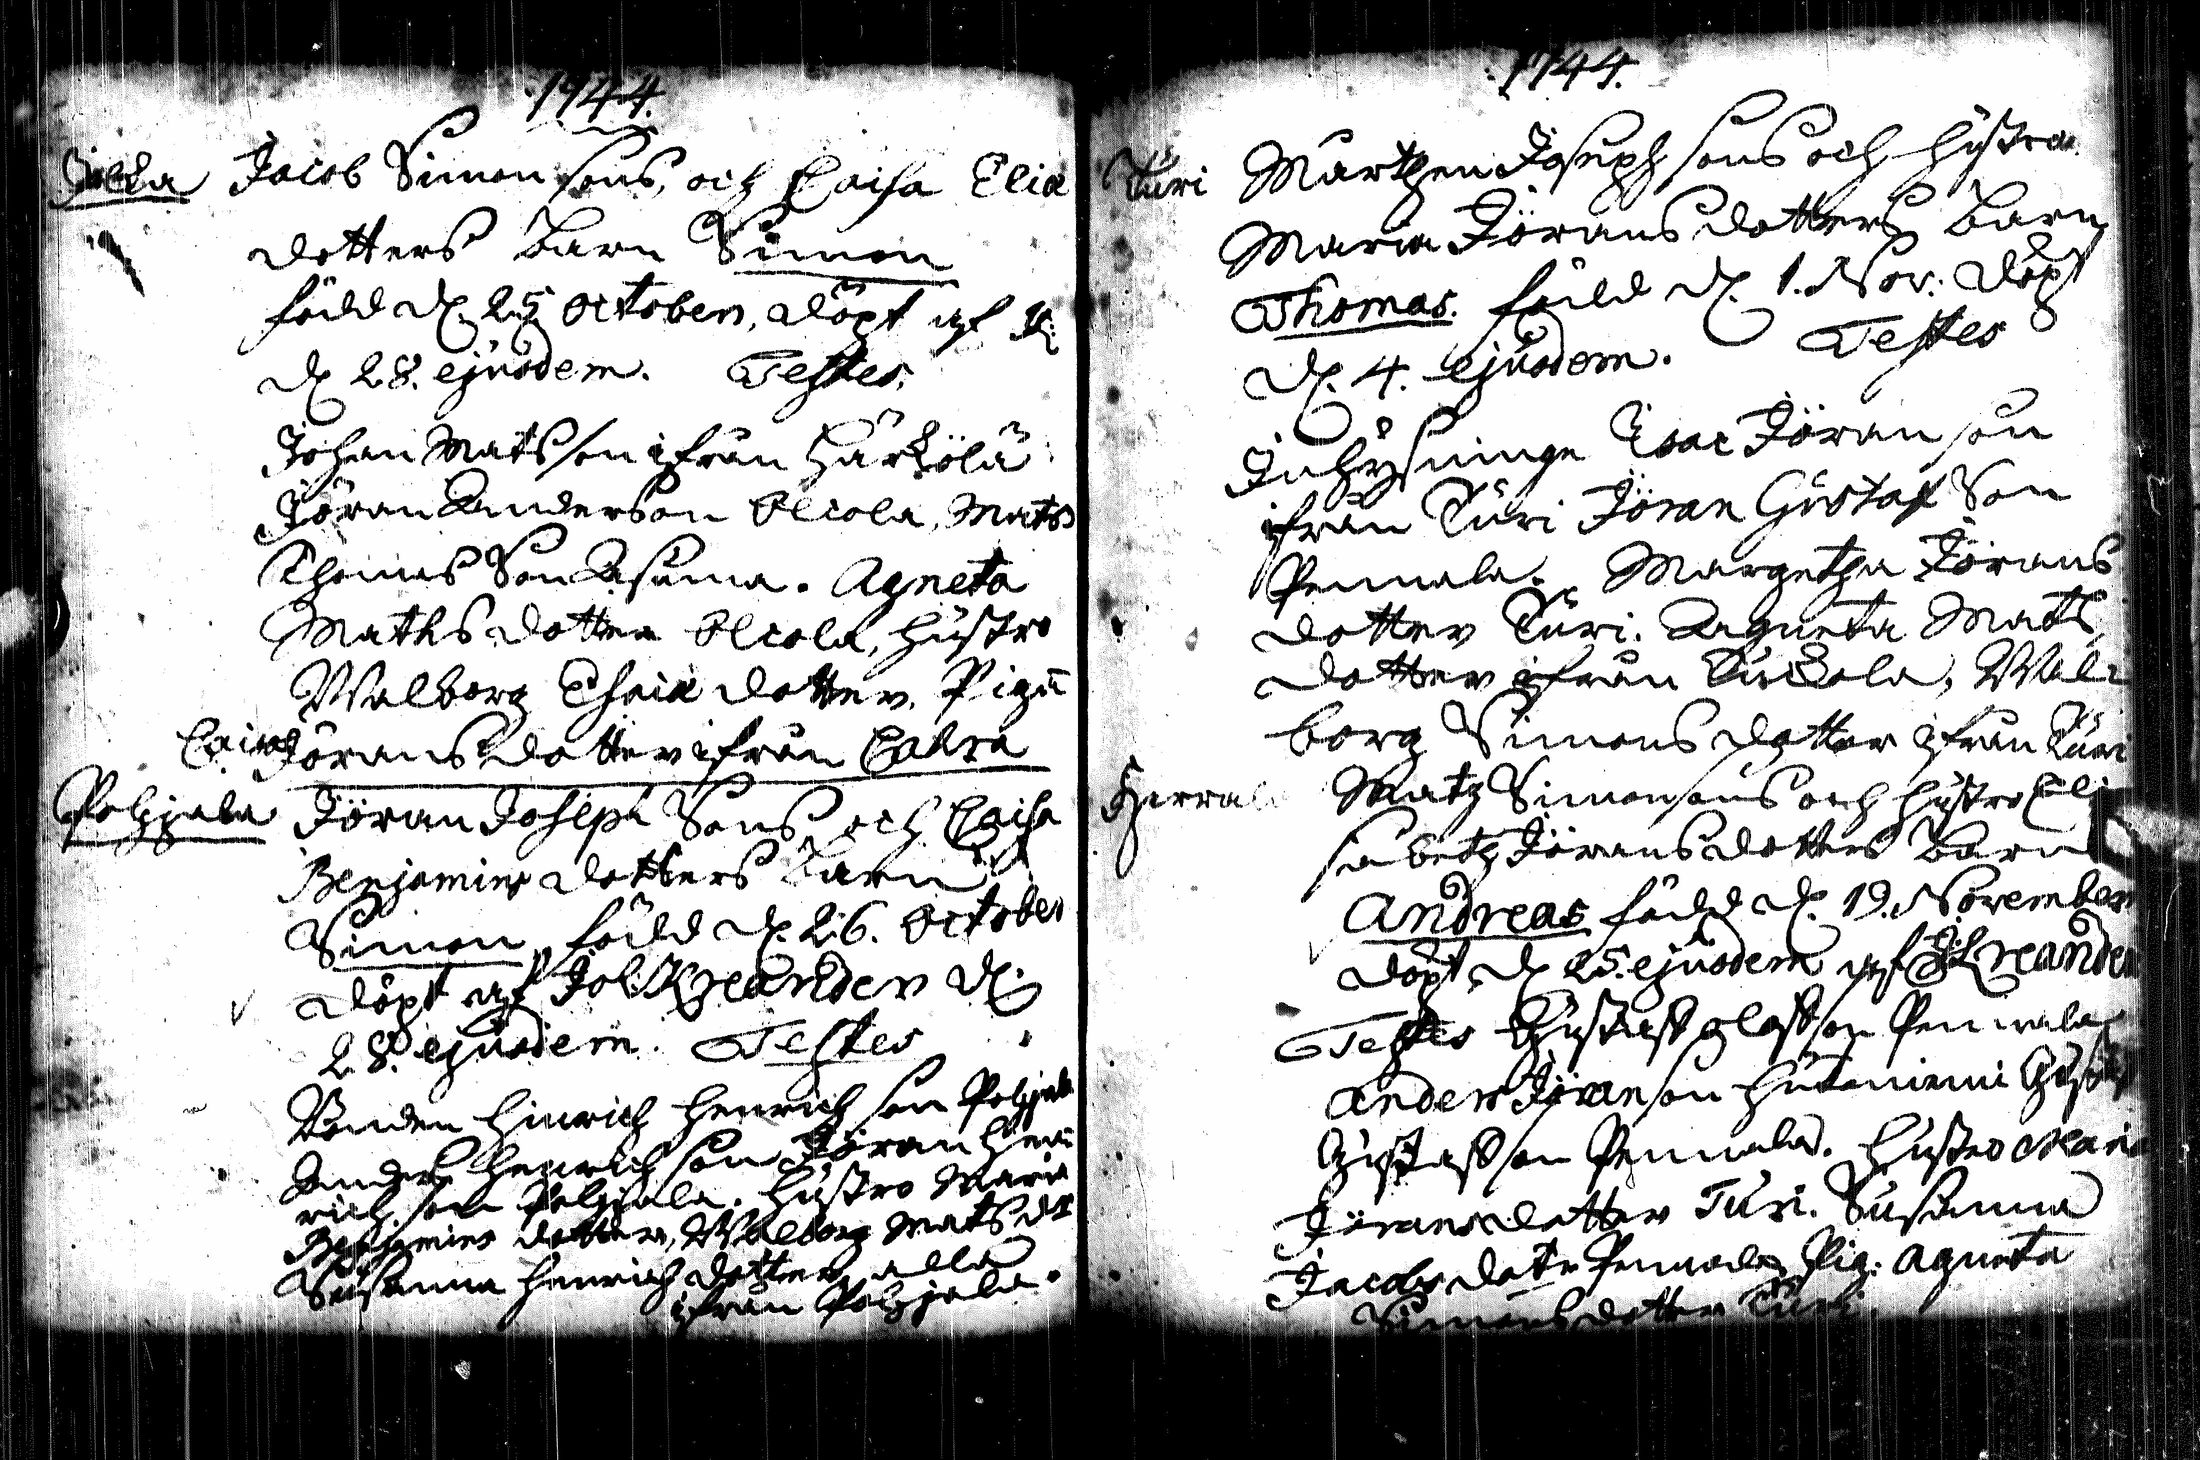 1744.
Jacob Simonsons, och Caisa Eliæ
dotters Barn Simon
född d. 25 October, döpt af
d. 28. ejusdem. Testes.
Johan Matsson ifrån Härkölä
Jöran Anderson Alcola, Mats
Thomas Son Asuma. Agneta
Maths dotter Alcola, Hustro
Walborg Esaiæ dotter. Pigan
Caisa Jörans dotter ifrån
Pohjala Jöran Joseph Sons och Caisa
Benjamins dotters Barn
Simon född d. 26. October
döpt af Joh: Kreander d.
28. ejusdem. Testes
Bonden Hinrich Henrich son Pohjala
Anders Henrich son Jöran Hen
rich son Pohjala. Hustro Maria
Benjamins dotter, Walborg Mats dr
Susanna Henrich dotter alla
ifrån Pohjala.
1744.
Turi Marthen Joseph sons och hustru
Maria Jörans dotters Barn
Thomas. född d. 1. Nov: döpt
d. 4. ejusdem. Testes
Inhysninge Isac Jöran son
ifrån Turi Jöran Gustaf Son
Pennala. Margetha Jörans
dotter Turi. Agneta Mats
dotter ifrån Wal-
borg Simons dotter ifrån Turi
Herrala Matz Simonsons och hustro Eli
sabeth Jörans dotters Barn
Andreas född d. 19. November
döpt d. 25. ejusdem af Kreander
Testes Gustaf Pennala
Anders Jöranson Gustaf
Gustafson Pennala. Hustro Maria
Jörans dotter Turi. Susanna
Jacobs dotr Pennala Pig: Agneta
Simons dotter Turi.